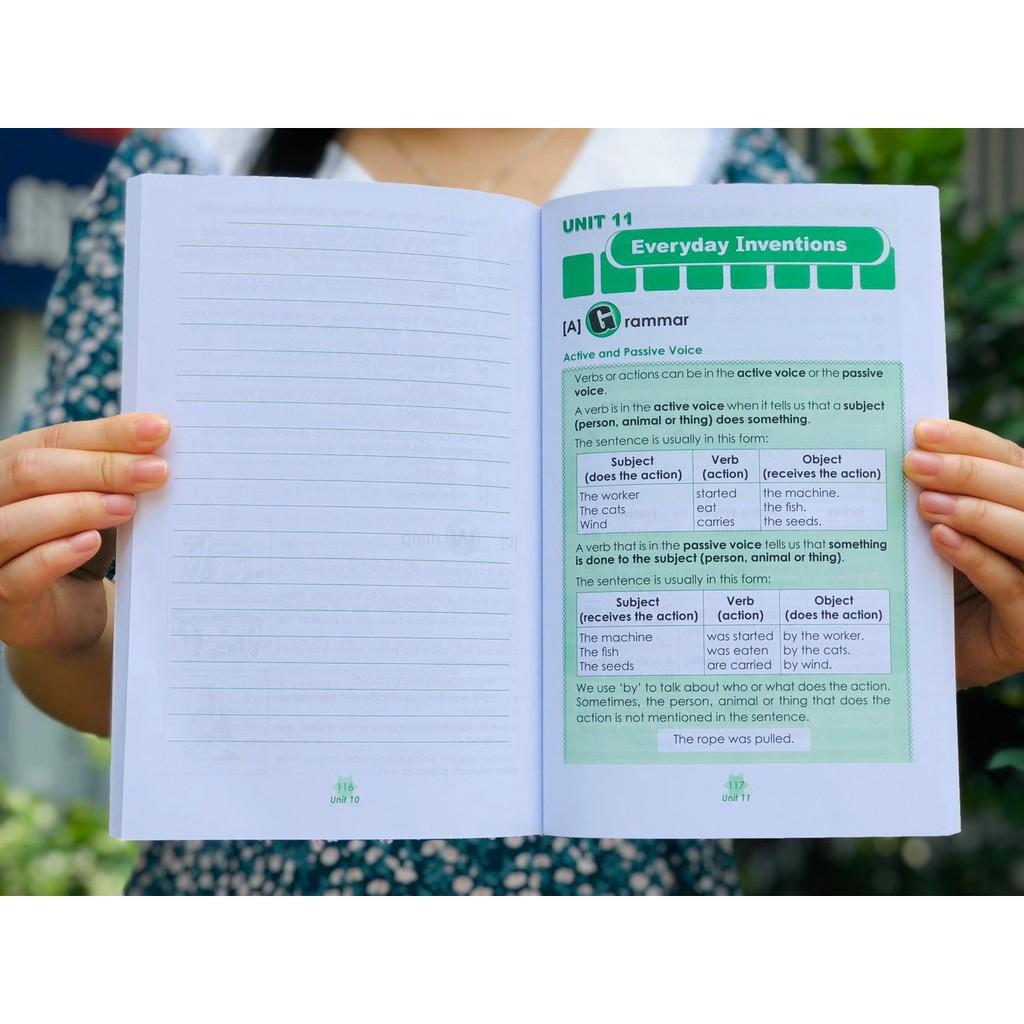 116
Unit 10
UNIT 11
Everyday Inventions
[A] Grammar
Active and Passive Voice
Verbs or actions can be in the active voice or the passive
voice.
A verb is in the active voice when it tells us that a subject
(person, animal or thing) does something.
The sentence is usually in this form:
Subject Verb Object
(does the action) (action) (receives the action)
The worker started the machine.
The cats eat the fish.
Wind carries the seeds.
A verb that is in the passive voice tells us that something
is done to the subject (person, animal or thing).
The sentence is usually in this form:
Subject Verb Object
(receives the action) (action) (does the action)
The machine was started by the worker.
The fish was eaten by the cats.
The seeds are carried by wind.
We use ‘by’ to talk about who or what does the action.
Sometimes, the person, animal or thing that does the
action is not mentioned in the sentence.
The rope was pulled.
117
Unit 11